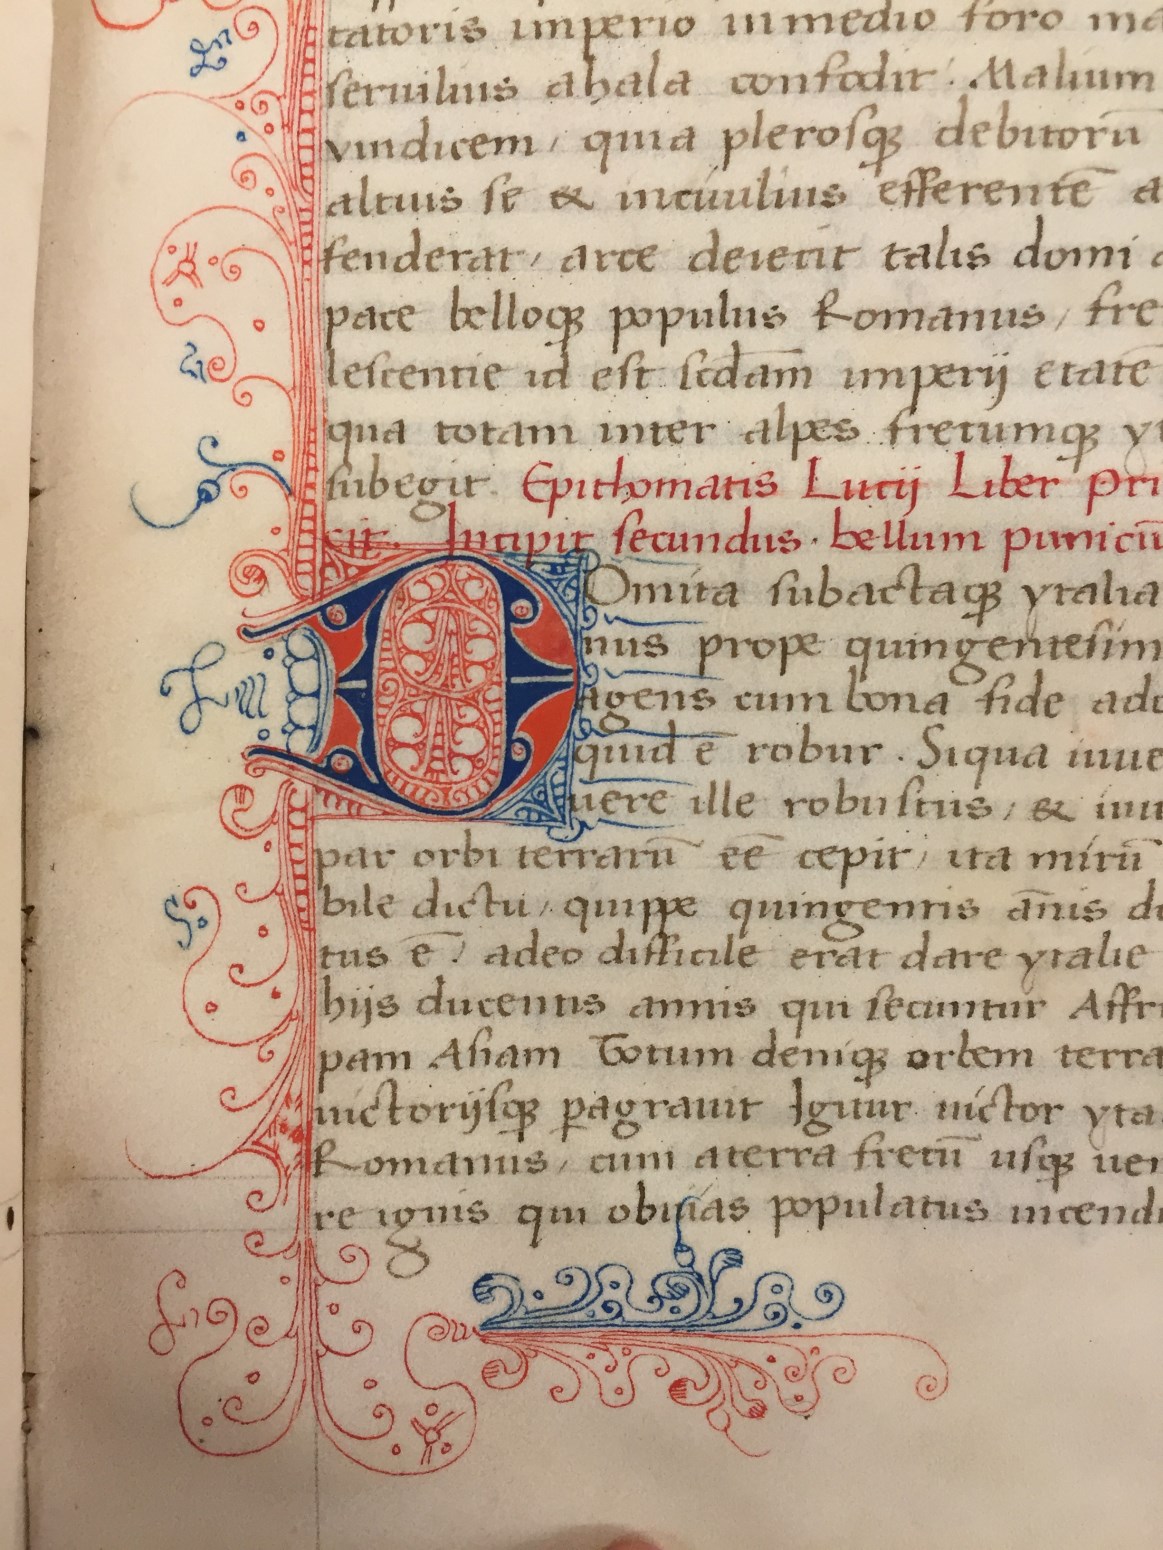 tatoris imperio in medio foro ma
seruilius ahala confodit. Malium
vindicem, quia plerosq debitorū
altius se & inciuilius efferentē a
fenderat, arce deiecit talis domi
pace belloq populus Romanus, fre
lescentie id est scdam imperij etatē
qua totam inter alpes fretumq yt
subegit. Epithomatis Lucij Liber Pri
cit. Incipit secundus. bellum punicū
DOmita subactaq ytalia
nus prope quingentesim
agens cum bona fide ado
quid ē robur. Siqua iuue
uere ille robustus, & iuu
par orbi terrarū eē cepit, ita mirū
bile dictu, quippe quingentis ānis do
tus ē, adeo difficile erat dare ytalie
hijs ducentis annis qui secuntur Affri
pam Asiam Totum deniq orbem terra
victorijsq pagrauit Igitur uictor yta
Romanus, cum aterra fretū usq uen
re ignis qui obuias populatus incendi